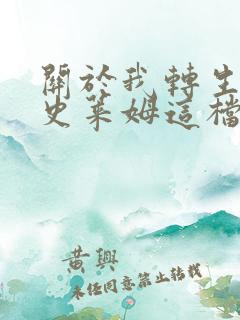 關於我轉生
史萊姆這檔
黃興
未經同意禁止轉載